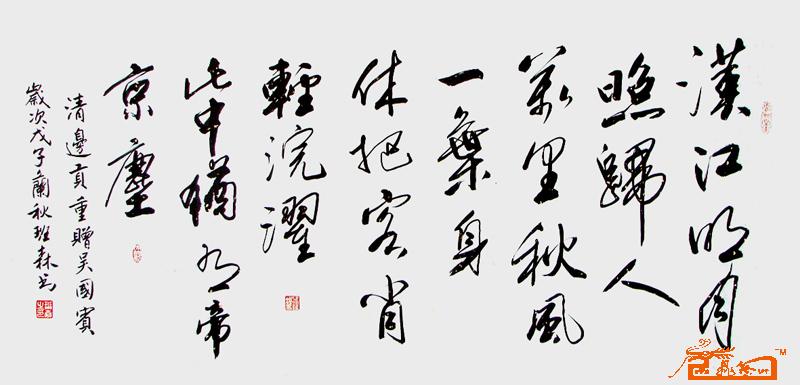 漢江明月
照歸人
萬里秋風
一葉身
休把客
輕浣濯
此中猶有帝
京塵
清邊貢重贈吳國賓
歲次戊子蘭秋班森书